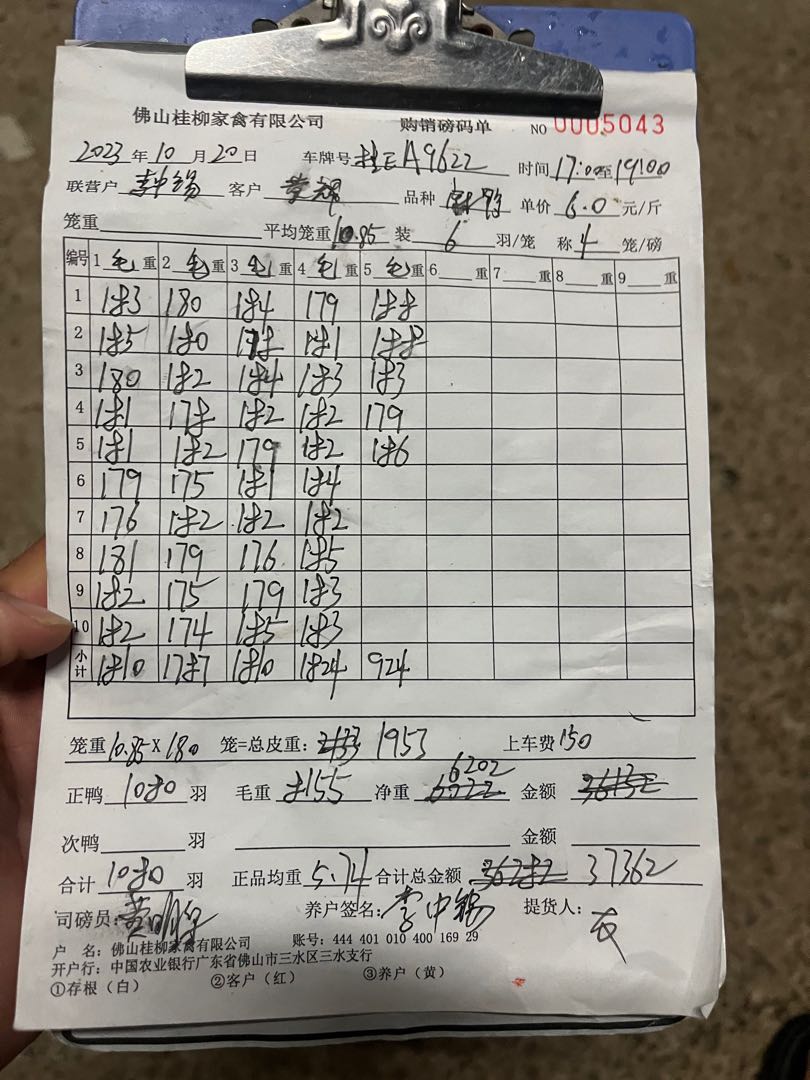 佛山桂柳家禽有限公司 购销磅码单 NO 0005043
2023 年 10 月 20 日 车牌号 桂E A9622 时间 17:00 至 19:00
联营户 李中锡 客户 品种 单价 6.0 元/斤
笼重 平均笼重 10.85 装 6 羽/笼 称 4 笼/磅
编号 1 毛 重 2 毛 重 3 毛 重 4 毛 重 5 毛 重 6 重 7 重 8 重 9 重
1 183 180 184 179 188
2 185 180 178 181 188
3 180 182 184 183 183
4 181 178 182 182 179
5 181 182 179 182 186
6 179 175 181 184
7 176 182 182 182
8 181 179 176 185
9 182 175 179 183
10 182 174 185 183
小计 1810 1787 1810 1824 924
笼重 10.85 X 180 笼=总皮重: 1953 上车费 150
正鸭 1080 羽 毛重 8155 净重 6202 金额
次鸭 羽 金额
合计 1080 羽 正品均重 5.74 合计总金额 37362
司磅员: 养户签名: 李中锡 提货人:
户 名: 佛山桂柳家禽有限公司 账号: 444 401 010 400 169 29
开户行: 中国农业银行广东省佛山市三水区三水支行
①存根（白） ②客户（红） ③养户（黄）